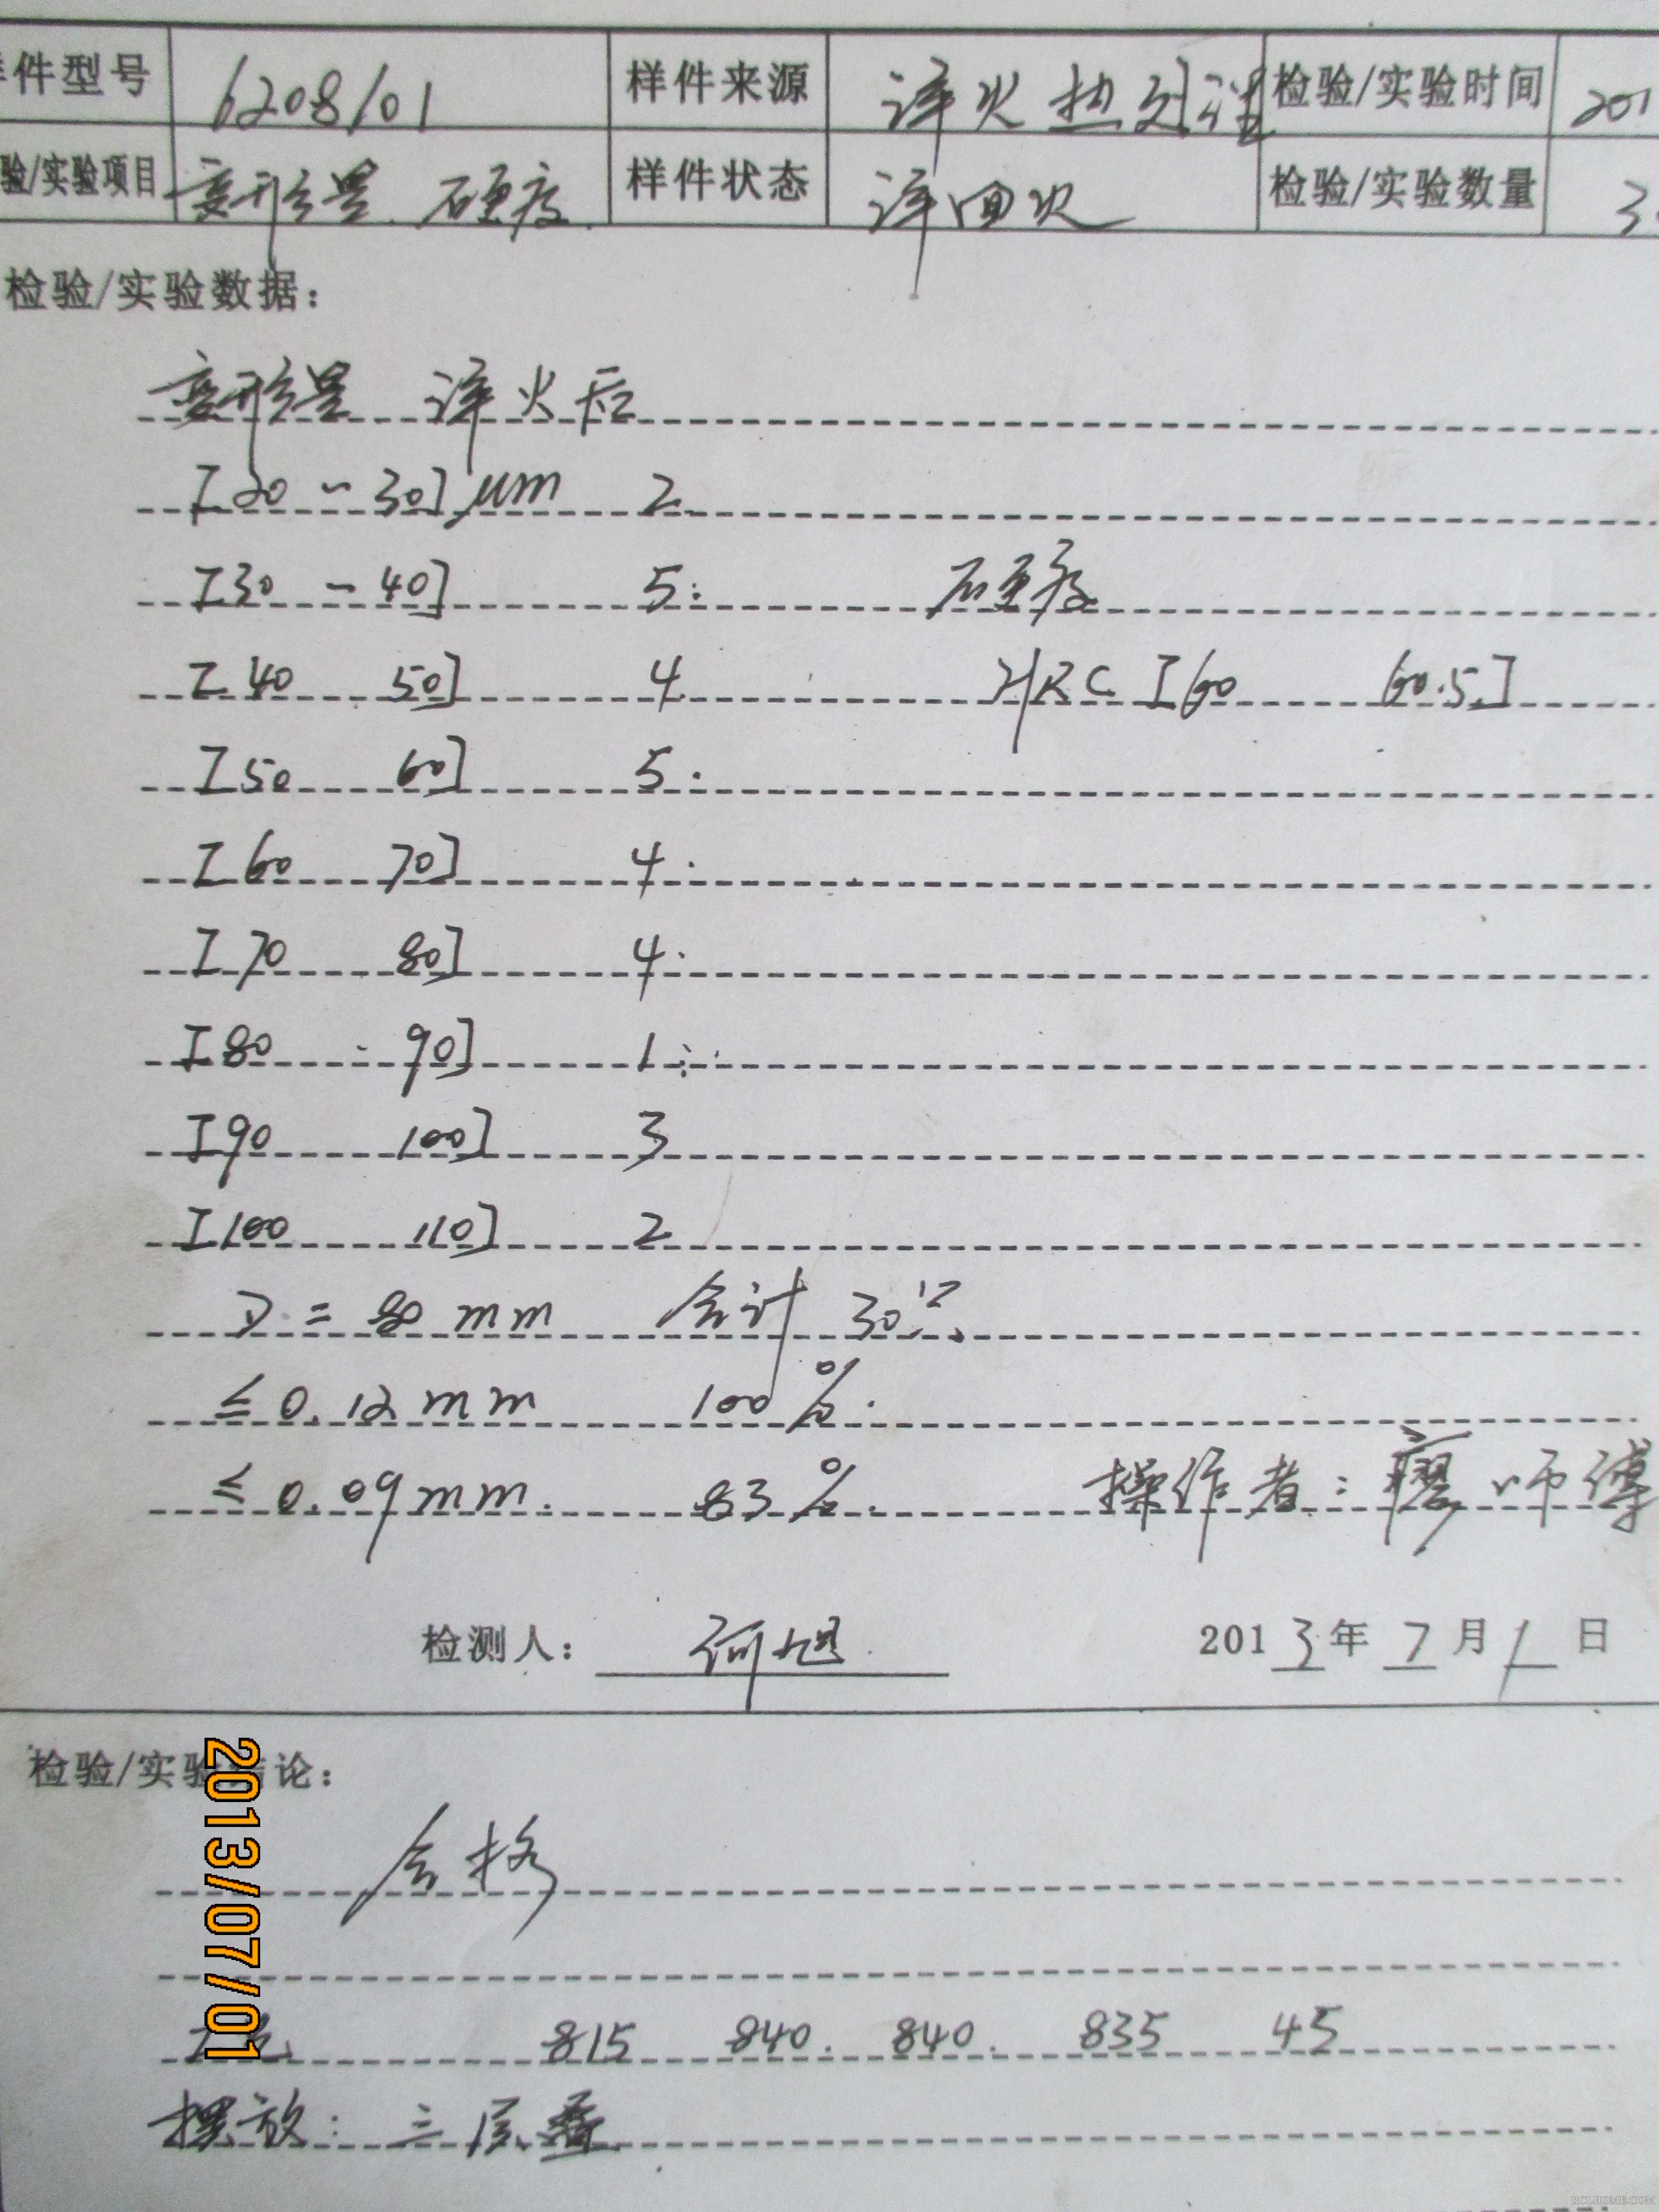 件型号 6208/01 样件来源 淬火热处理 检验/实验时间 201
验/实验项目 变形量、硬度. 样件状态 淬回火 检验/实验数量 3
检验/实验数据:
变形量 淬火后
[20 ~ 30] μm 2
[30 - 40] 5. 硬度
[40 50] 4 HRC [60 60.5]
[50 60] 5.
[60 70] 4.
[70 80] 4.
[80 - 90] 1.
[90 100] 3
[100 110] 2
D = 80 mm 合计 30只
≤ 0.12 mm 100%.
≤ 0.09 mm. 83%. 操作者: 廖师傅
检测人: 何旭 2013年7月1日
检验/实验结论:
合格
815 840. 840. 835 45
摆放: 三层叠
2013/07/01
RCLHOME.COM